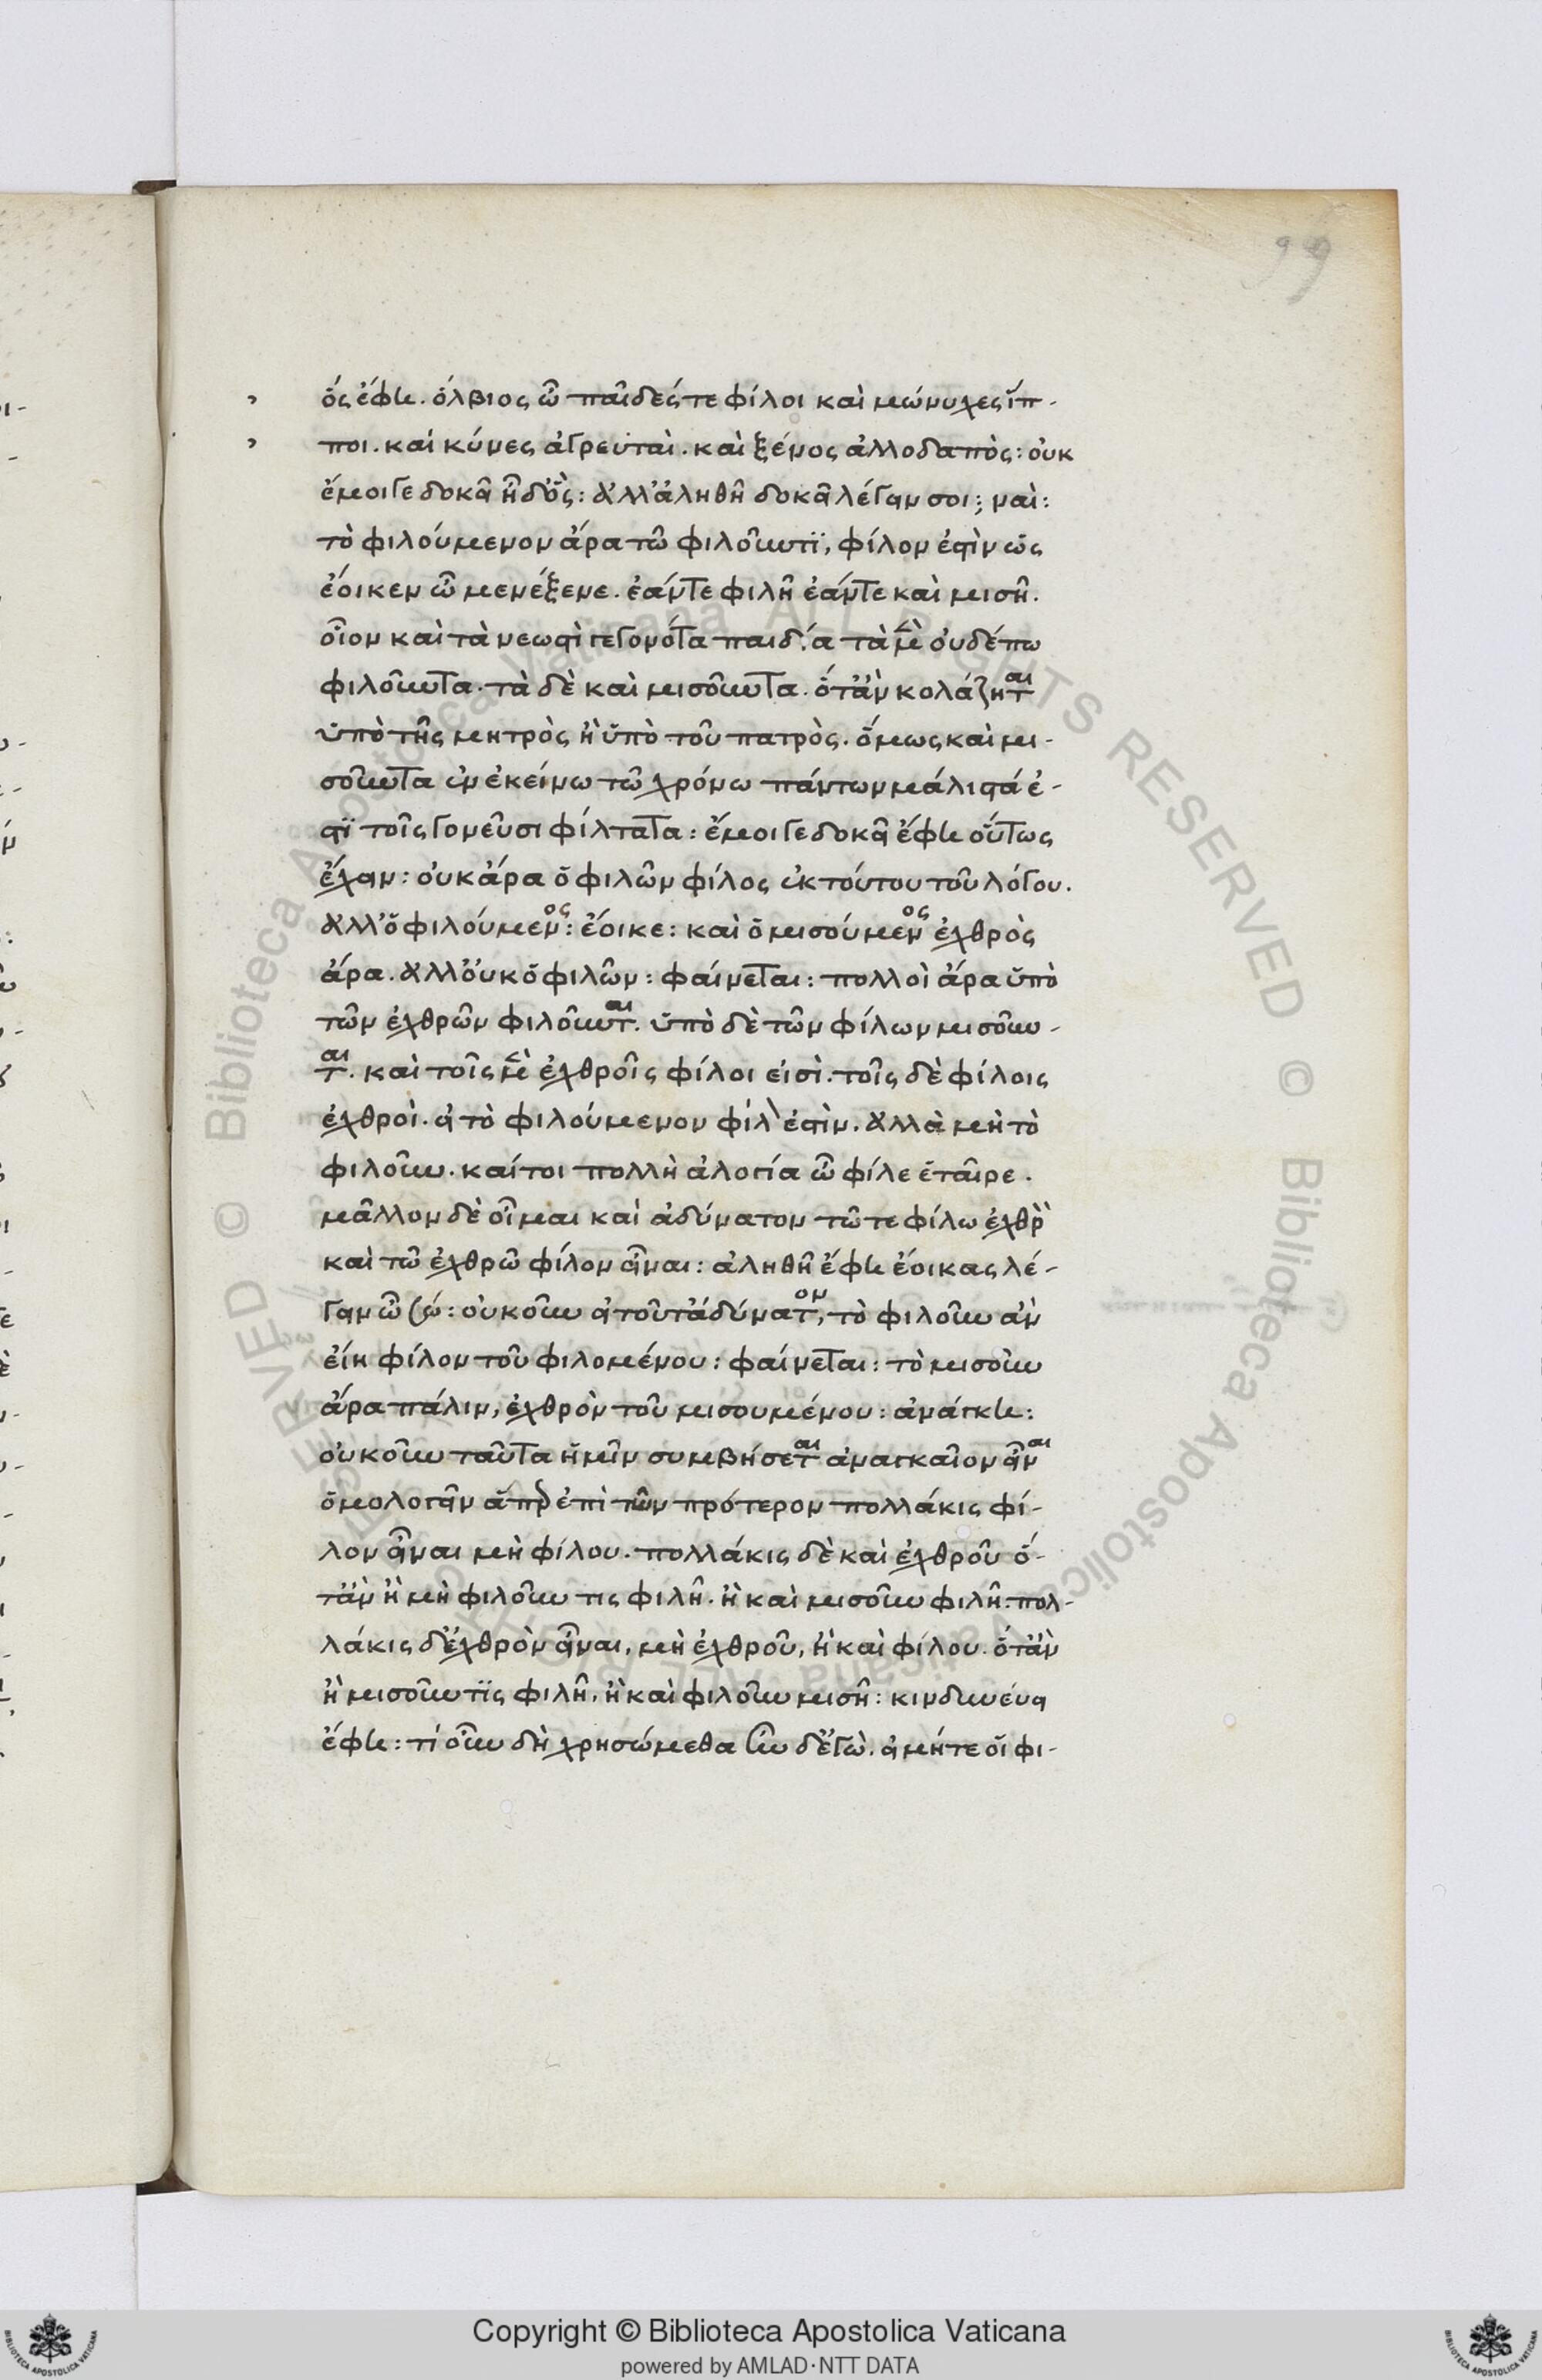 99
ὅς ἔφη. ὄλβιος ὧ παῖδές τε φίλοι καὶ μώνυχες ἵπ-
ποι. καὶ κύνες ἀγρευταὶ. καὶ ξένος ἀλλοδαπὸς: οὐκ
ἔμοιγε δοκεῖ ἦ δ' ὅς: ἀλλ' ἀληθῆ δοκεῖ λέγειν σοι; ναὶ:
τὸ φιλούμενον ἄρα τῶ φιλοῦντι, φίλον ἐστὶν ὡς
ἔοικεν ὦ μενέξενε. ἐάν τε φιλῆ ἐάν τε καὶ μισῆ.
οἷον καὶ τὰ νεωστὶ γεγονότα παιδία τὰ μὲν οὐδέπω
φιλοῦντα. τὰ δὲ καὶ μισοῦντα. ὅταν κολάζηται
ὑπὸ τῆς μητρὸς ἢ ὑπὸ τοῦ πατρὸς. ὅμως καὶ μι-
σοῦντα ἐν ἐκείνω τῶ χρόνω πάντων μάλιστά ἐ-
στι τοῖς γονεῦσι φίλτατα: ἔμοιγε δοκεῖ ἔφη οὕτως
ἔχειν: οὐκ ἄρα ὁ φιλῶν φίλος ἐκ τούτου τοῦ λόγου.
ἀλλ' ὁ φιλούμενος: ἔοικε: καὶ ὁ μισούμενος ἐχθρὸς
ἄρα. ἀλλ' οὐκ ὁ φιλῶν: φαίνεται: πολλοὶ ἄρα ὑπὸ
τῶν ἐχθρῶν φιλοῦνται. ὑπὸ δὲ τῶν φίλων μισοῦν-
ται. καὶ τοῖς μὲν ἐχθροῖς φίλοι εἰσὶ. τοῖς δὲ φίλοις
ἐχθροὶ. εἰ τὸ φιλούμενον φίλον ἐστὶν. ἀλλὰ μὴ τὸ
φιλοῦν. καίτοι πολλὴ ἀλογία ὦ φίλε ἑταῖρε.
μᾶλλον δὲ οἶμαι καὶ ἀδύνατον τῶ τε φίλω ἐχθρὸν
καὶ τῶ ἐχθρῶ φίλον εἶναι: ἀληθῆ ἔφη ἔοικας λέ-
γειν ὦ σώ: οὐκοῦν εἰ τοῦτ' ἀδύνατον, τὸ φιλοῦν ἂν
εἴη φίλον τοῦ φιλομένου: φαίνεται: τὸ μισοῦν
ἄρα πάλιν, ἐχθρὸν τοῦ μισουμένου: ἀνάγκη:
οὐκοῦν ταῦτα ἡμῖν συμβήσεται ἀναγκαῖον εἶναι
ὁμολογεῖν ἅπερ ἐπὶ τῶν πρότερον πολλάκις φί-
λον εἶναι μὴ φίλου. πολλάκις δὲ καὶ ἐχθροῦ ὅ-
ταν ἢ μὴ φιλοῦν τις φιλῆ. ἢ καὶ μισοῦν φιλῆ. πολ-
λάκις δ' ἐχθρὸν εἶναι, μὴ ἐχθροῦ, ἢ καὶ φίλου. ὅταν
ἢ μισοῦν τις φιλῆ, ἢ καὶ φιλοῦν μισῆ: κινδυνεύει
ἔφη: τί οὖν δὴ χρησώμεθα ἦν δ' ἐγὼ. εἰ μήτε οἱ φι-
Copyright © Biblioteca Apostolica Vaticana
powered by AMLAD·NTT DATA